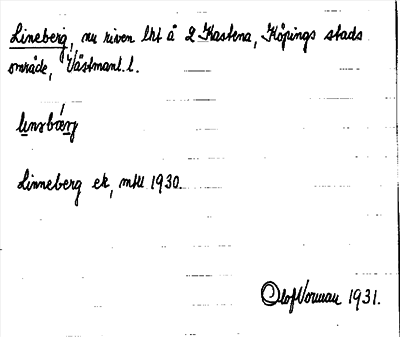 Lineberg, nu riven lht å 2 Kastena, Köpings stads
område, Västmanl. l.
Linneberg ek, mtl 1930.
Olof Norman 1931.